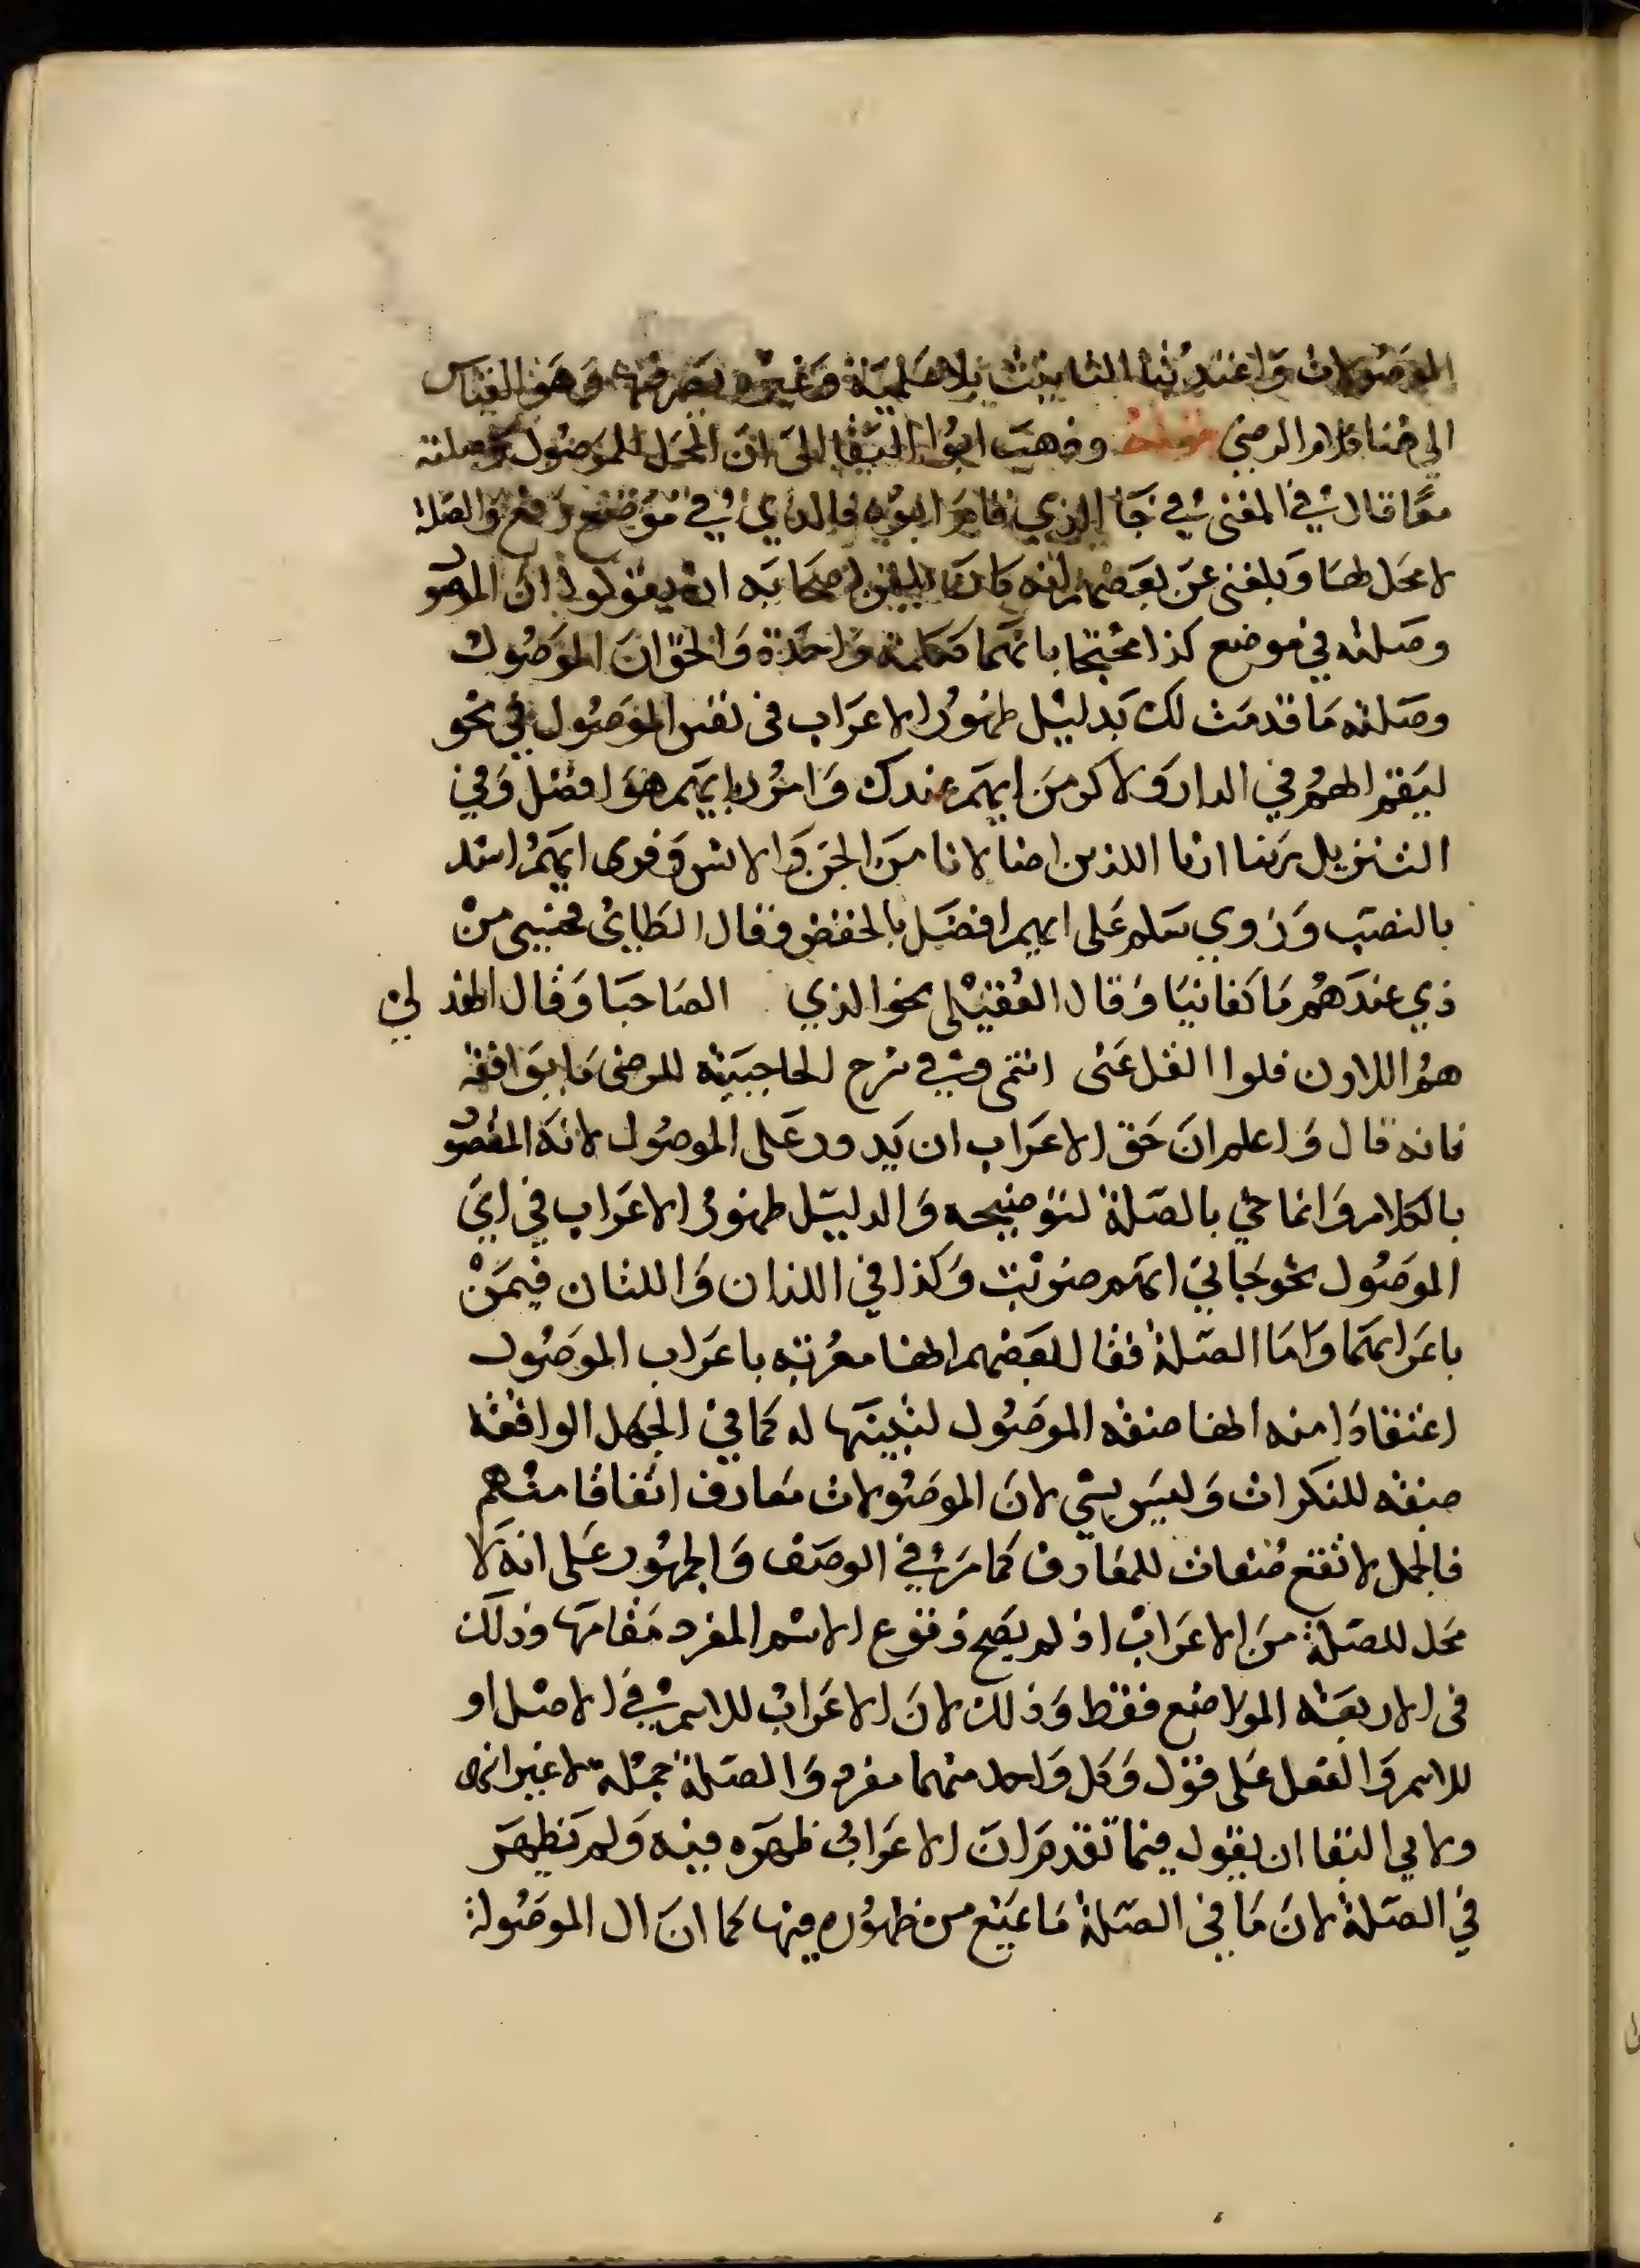 الموصولات وغيره يصرفها وهو القياس
الى هنا كلام الرضى وذهب ابوا البقا الى ان المحل للموصول وصلته
معا قال في المغنى في جا الذي قام ابوه فالذي في موضع رفع والصلة
لا محل لها وبلغنى عن بعضهم انه كان يلقن اصحابه ان يقولوا ان الموصو
وصلته في موضع كذا محتجا بانهما ككلمة واحدة والحق ان الموصول
وصلته ما قدمت لك بدليل ظهور الاعراب فى نفس الموصول في نحو
ليقم ايهم في الدار ولاكرمن ايهم عندك وامرر بايهم هو افضل وفي
التنزيل ربنا ارنا اللذين اضلانا من الجن والانس وقرى ايهم اشد
بالنصب وروي سلم على ايهم افضل بالخفض وقال الطاىي فحسبى من
ذي عندهم ما كفانيا وقال العقيلى نحوا لذي الصاحبا وقال الهذ لي
هموا اللاون فلوا الغل عنى انتهى وفي شرح الحاجبية للرضى ما يوافقه
فانه قال واعلم ان حق الاعراب ان يدور على الموصول لانه المقصو
بالكلام وانما جي بالصلة لتوضيحه والدليل ظهور الاعراب في اي
الموصول نحو جاني ايهم ضربت وكذا في اللذان واللتان فيمن
باعرابهما واما الصلة فقال بعضهم انها معربة باعراب الموصول
اعتقادا منه انها صفة الموصول لتبينها له كما في الجمل الواقعة
صفة للنكرات وليس بشي لان الموصولات معارف اتفاقا منهم
فالجمل لا تقع صفات للمعارف كما مر في الوصف والجمهور على انه لا
محل للصلة من الاعراب اذ لم يصح وقوع الاسم المفرد مقامها وذلك
فى الاربعة المواضع فقط وذلك لان الاعراب للاسم في الاصل او
للاسم والفعل على قول وكل واحد منهما مفرد والصلة جملة لا غير انتهى
ولابي البقا ان يقول فيما تقدم ان الاعراب ظهره فيه ولم تظهر
في الصلة لان ما في الصلة ما يمنع من ظهوره فيها كما ان ال الموصولة